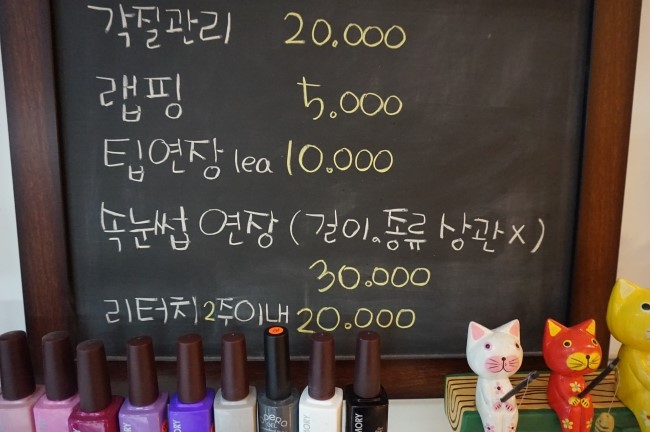 각질관리 20.000
랩핑 5.000
팁연장 1ea 10.000
속눈썹 연장 (길이.종류 상관 x)
30.000
리터치 2주이내 20.000
MORY
MORY
MORY